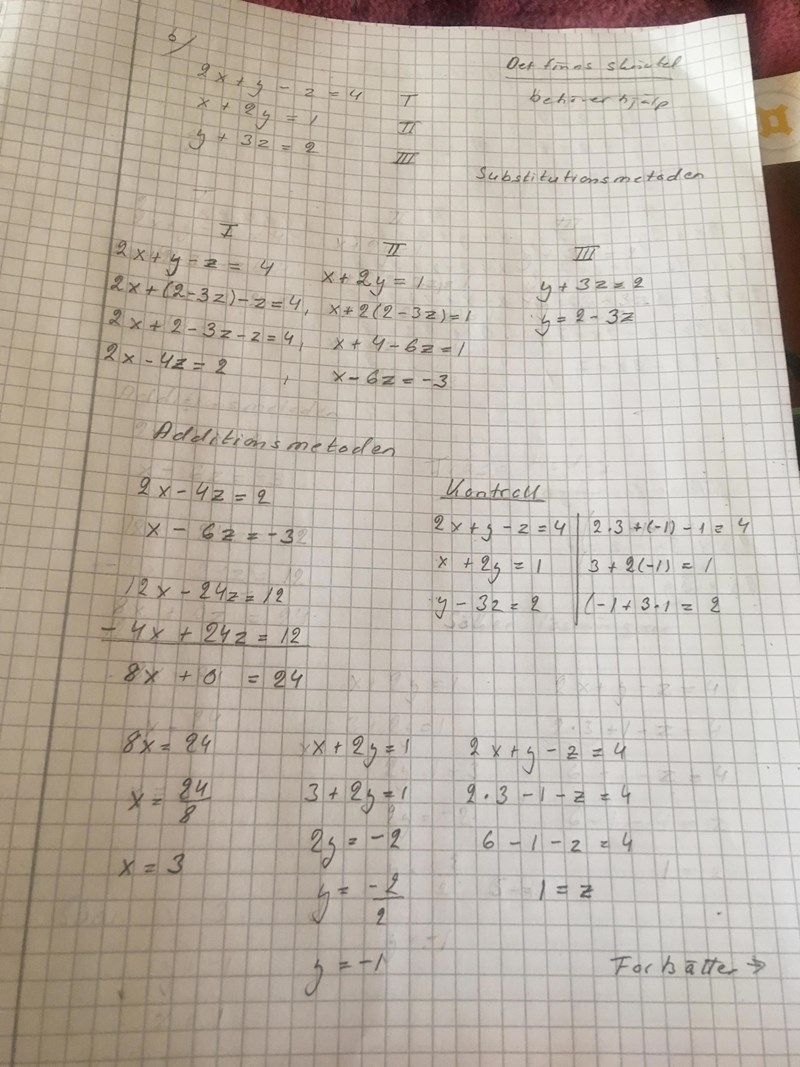 b)
2x + y - z = 4 I
x + 2y = 1 II
y + 3z = 2 III
behöver hjälp
Substitutionsmetoden
I
2x + y - z = 4
2x + (2-3z) - z = 4,
2x + 2 - 3z - z = 4,
2x - 4z = 2 ,
II
x + 2y = 1
x + 2(2-3z) = 1
x + 4 - 6z = 1
x - 6z = -3
III
y + 3z = 2
y = 2 - 3z
Additionsmetoden
2x - 4z = 2
x - 6z = -3
12x - 24z = 12
- 4x + 24z = 12
8x + 0 = 24
Kontroll
2x + y - z = 4 | 2·3 + (-1) - 1 = 4
x + 2y = 1 | 3 + 2(-1) = 1
y - 3z = 2 | (-1 + 3·1 = 2
8x = 24
x = 24/8
x = 3
x + 2y = 1
3 + 2y = 1
2y = -2
y = -2/2
y = -1
2x + y - z = 4
2·3 - 1 - z = 4
6 - 1 - z = 4
1 = z
Forbätter →